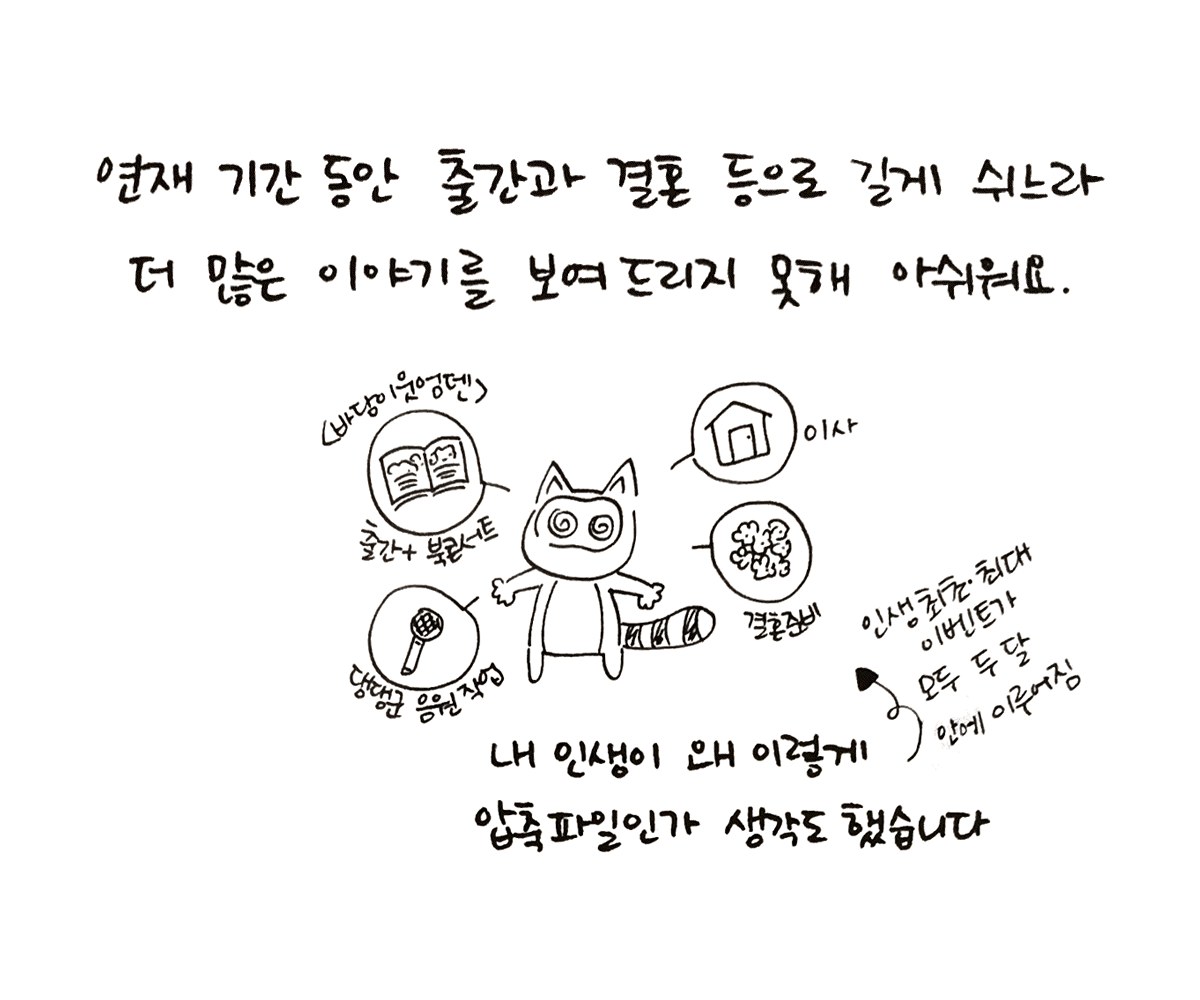 연재 기간 동안 출간과 결혼 등으로 길게 쉬느라
더 많은 이야기를 보여드리지 못해 아쉬워요.
<바닷이웃엉덴>
출간+ 북콘서트
이사
결혼준비
댕댕군 음원작업
인생 최초·최대
이벤트가
모두 두 달
안에 이루어짐
내 인생이 왜 이렇게
압축파일인가 생각도 했습니다